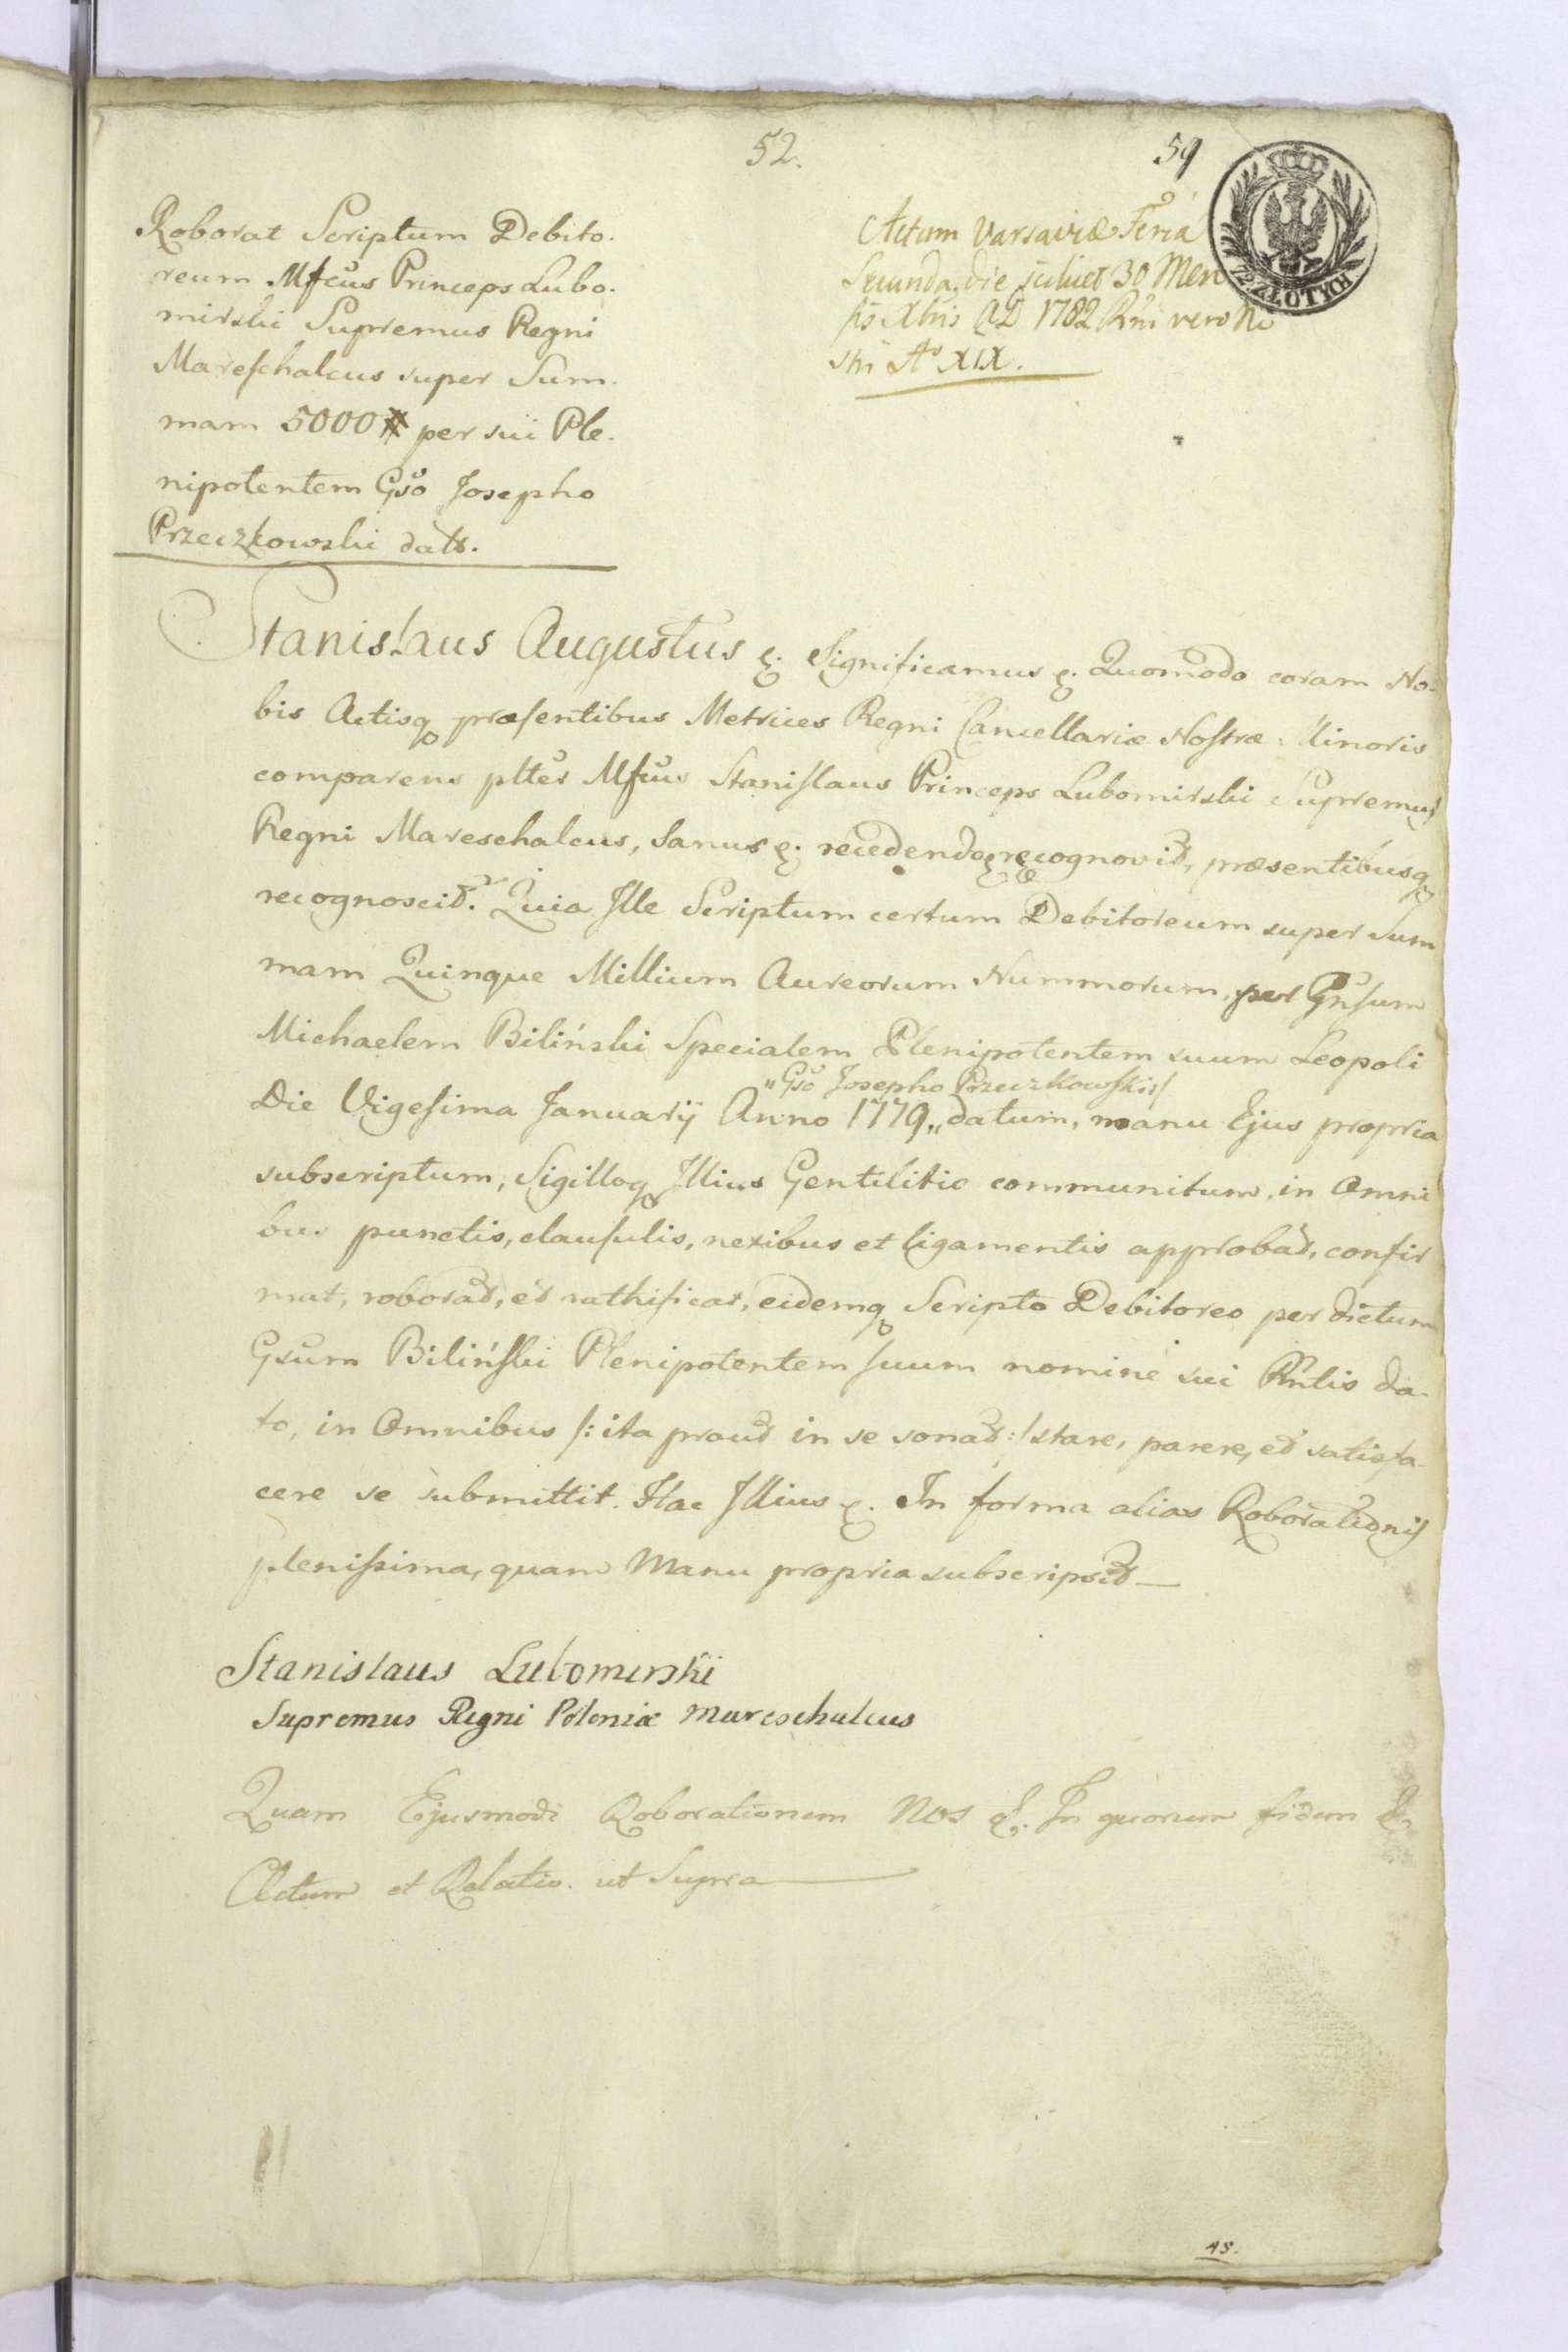 52.
59
Roborat Scriptum Debito-
reum Mfcus Princeps Lubo-
mirski Supremus Regni
Mareschalcus super Sum-
mam 5000 # per sui Ple-
nipotentem Gso Josepho
Przeczkowski dats.
Actum Varsaviæ Feria
Secunda, die scilicet 30 Men
sis Xbris AD 1782 Rni vero No
stri Ao XIX.
Stanislaus Augustus &. Significamus &. Quomodo coram No-
bis Actisq præsentibus Metrices Regni Cancellariæ Nostræ Minoris
comparens plter Mfcus Stanislaus Princeps Lubomirski Supremus
Regni Mareschalcus, Sanus &. recedendo recognovit, præsentibusq
recognoscit. Quia Ille Scriptum certum Debitoreum super Sum
mam Quinque Millium Aureorum Nummorum, per Gnsum
Michaelem Biliński Specialem Plenipotentem suum Leopoli
"Gso Josepho Przeczkowski
Die Vigesima Januarij Anno 1779 „ datum, manu Ejus propria
subscriptum, Sigilloq Illius Gentilitio communitum, in Omni
bus punctis, clausulis, nexibus et ligamentis approbat, confir
mat, roborat, et rathificat, eidemq Scripto Debitoreo per dictum
Gsum Biliński Plenipotentem suum nomine sui Rntis da-
to, in Omnibus /: ita prout in se sonat :/ stare, parere, et satisfa-
cere se submittit. Hac Illius &. In forma alias Roborationis
plenissima, quam Manu propria subscripsit —
Stanislaus Lubomirski
Supremus Regni Poloniæ Mareschalcus
Quam Ejusmodi Roborationem Nos &. In quorum fidem &.
Actum et Relatio. ut Supra
AS.